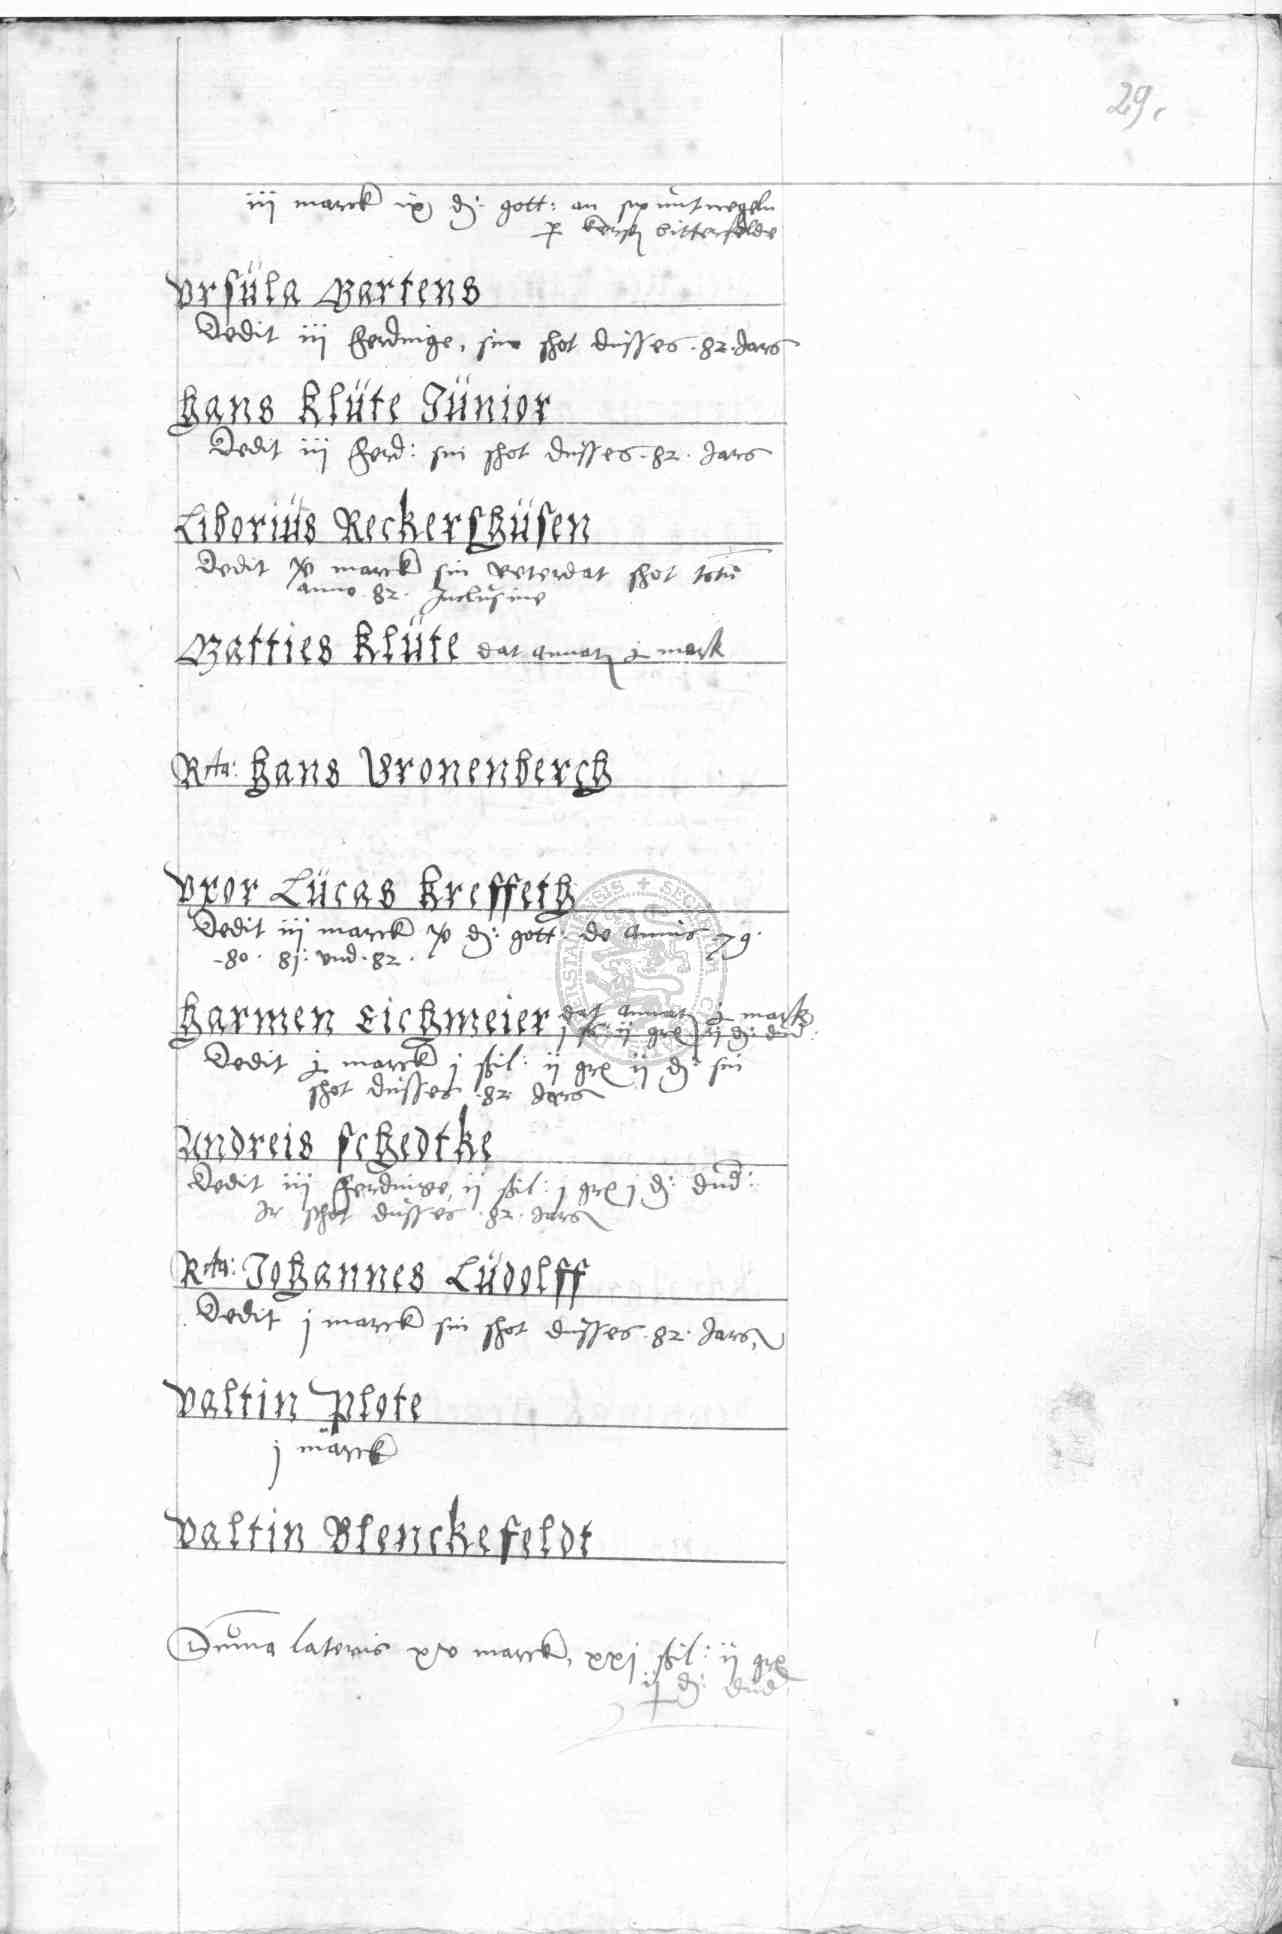 29.
iii marck ix d: gott: an
p bitterfelde
Vrsüla Bartens
Dedit iii Ferdinge, sin schot düsses .82. Jars
Hans Klüte Jünior
Dedit iii Ferd: sin schot düsses .82. Jars
Liborius Reckershüsen
Dedit marck sin veterdat schot
anno .82. Inclusive
Matties Klüte dat mark
Hans Vronenberch
Vxor Lücas Kreffeth
Dedit iii marck d: gott: de annis .79.
.80. 81: vnd .82.
Harmen Eichmeier dat mark
ij d:
Dedit marck j ßil: ij ij d: sin
schot düsses .82. Jars
Andreis Schedtke
Dedit iii Ferdinge, ij ßil: j j d:
Ir schot düsses .82. Jars
Johannes Lüdolff
Dedit j marck sin schot düsses .82. Jars,
Valtin Plote
j marck
Valtin Blenckefeldt
Summa lateris xv marck, xxj ßil: ij
d: